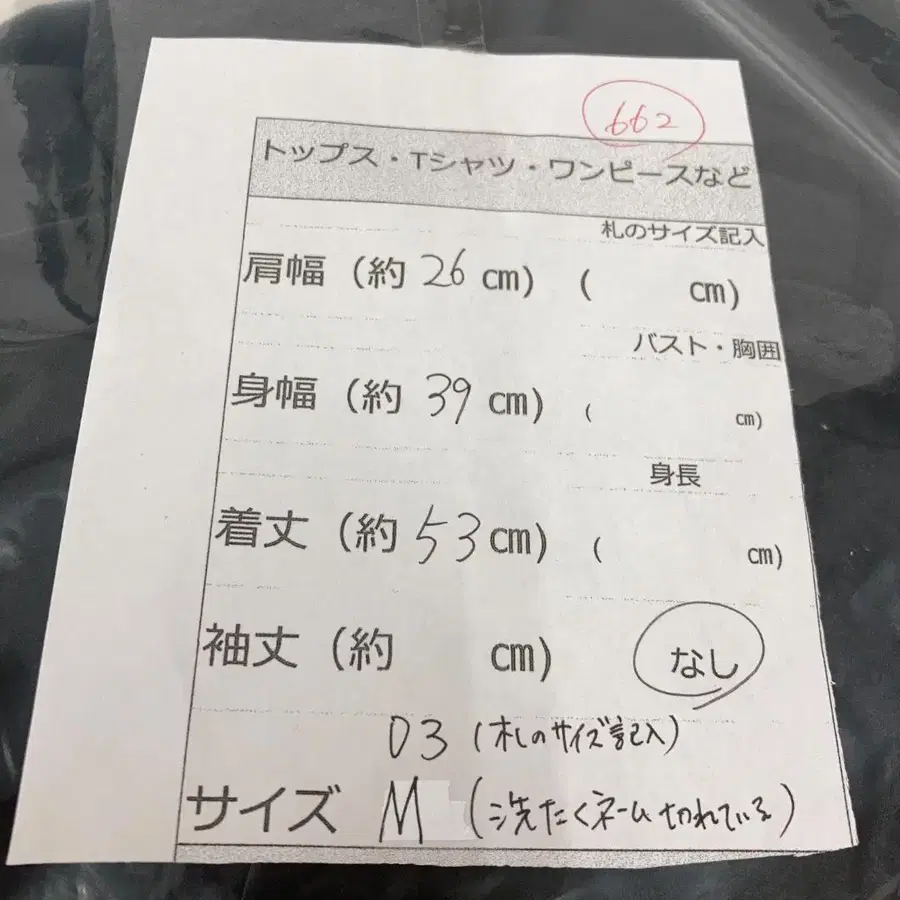 662
トップス・Tシャツ・ワンピースなど
札のサイズ記入
肩幅（約 26 cm） （ cm）
バスト・胸囲
身幅（約 39 cm） （ cm）
身長
着丈（約 53 cm） （ cm）
袖丈（約 cm） なし
03（札のサイズ記入）
サイズ M（洗たくネーム切れている）